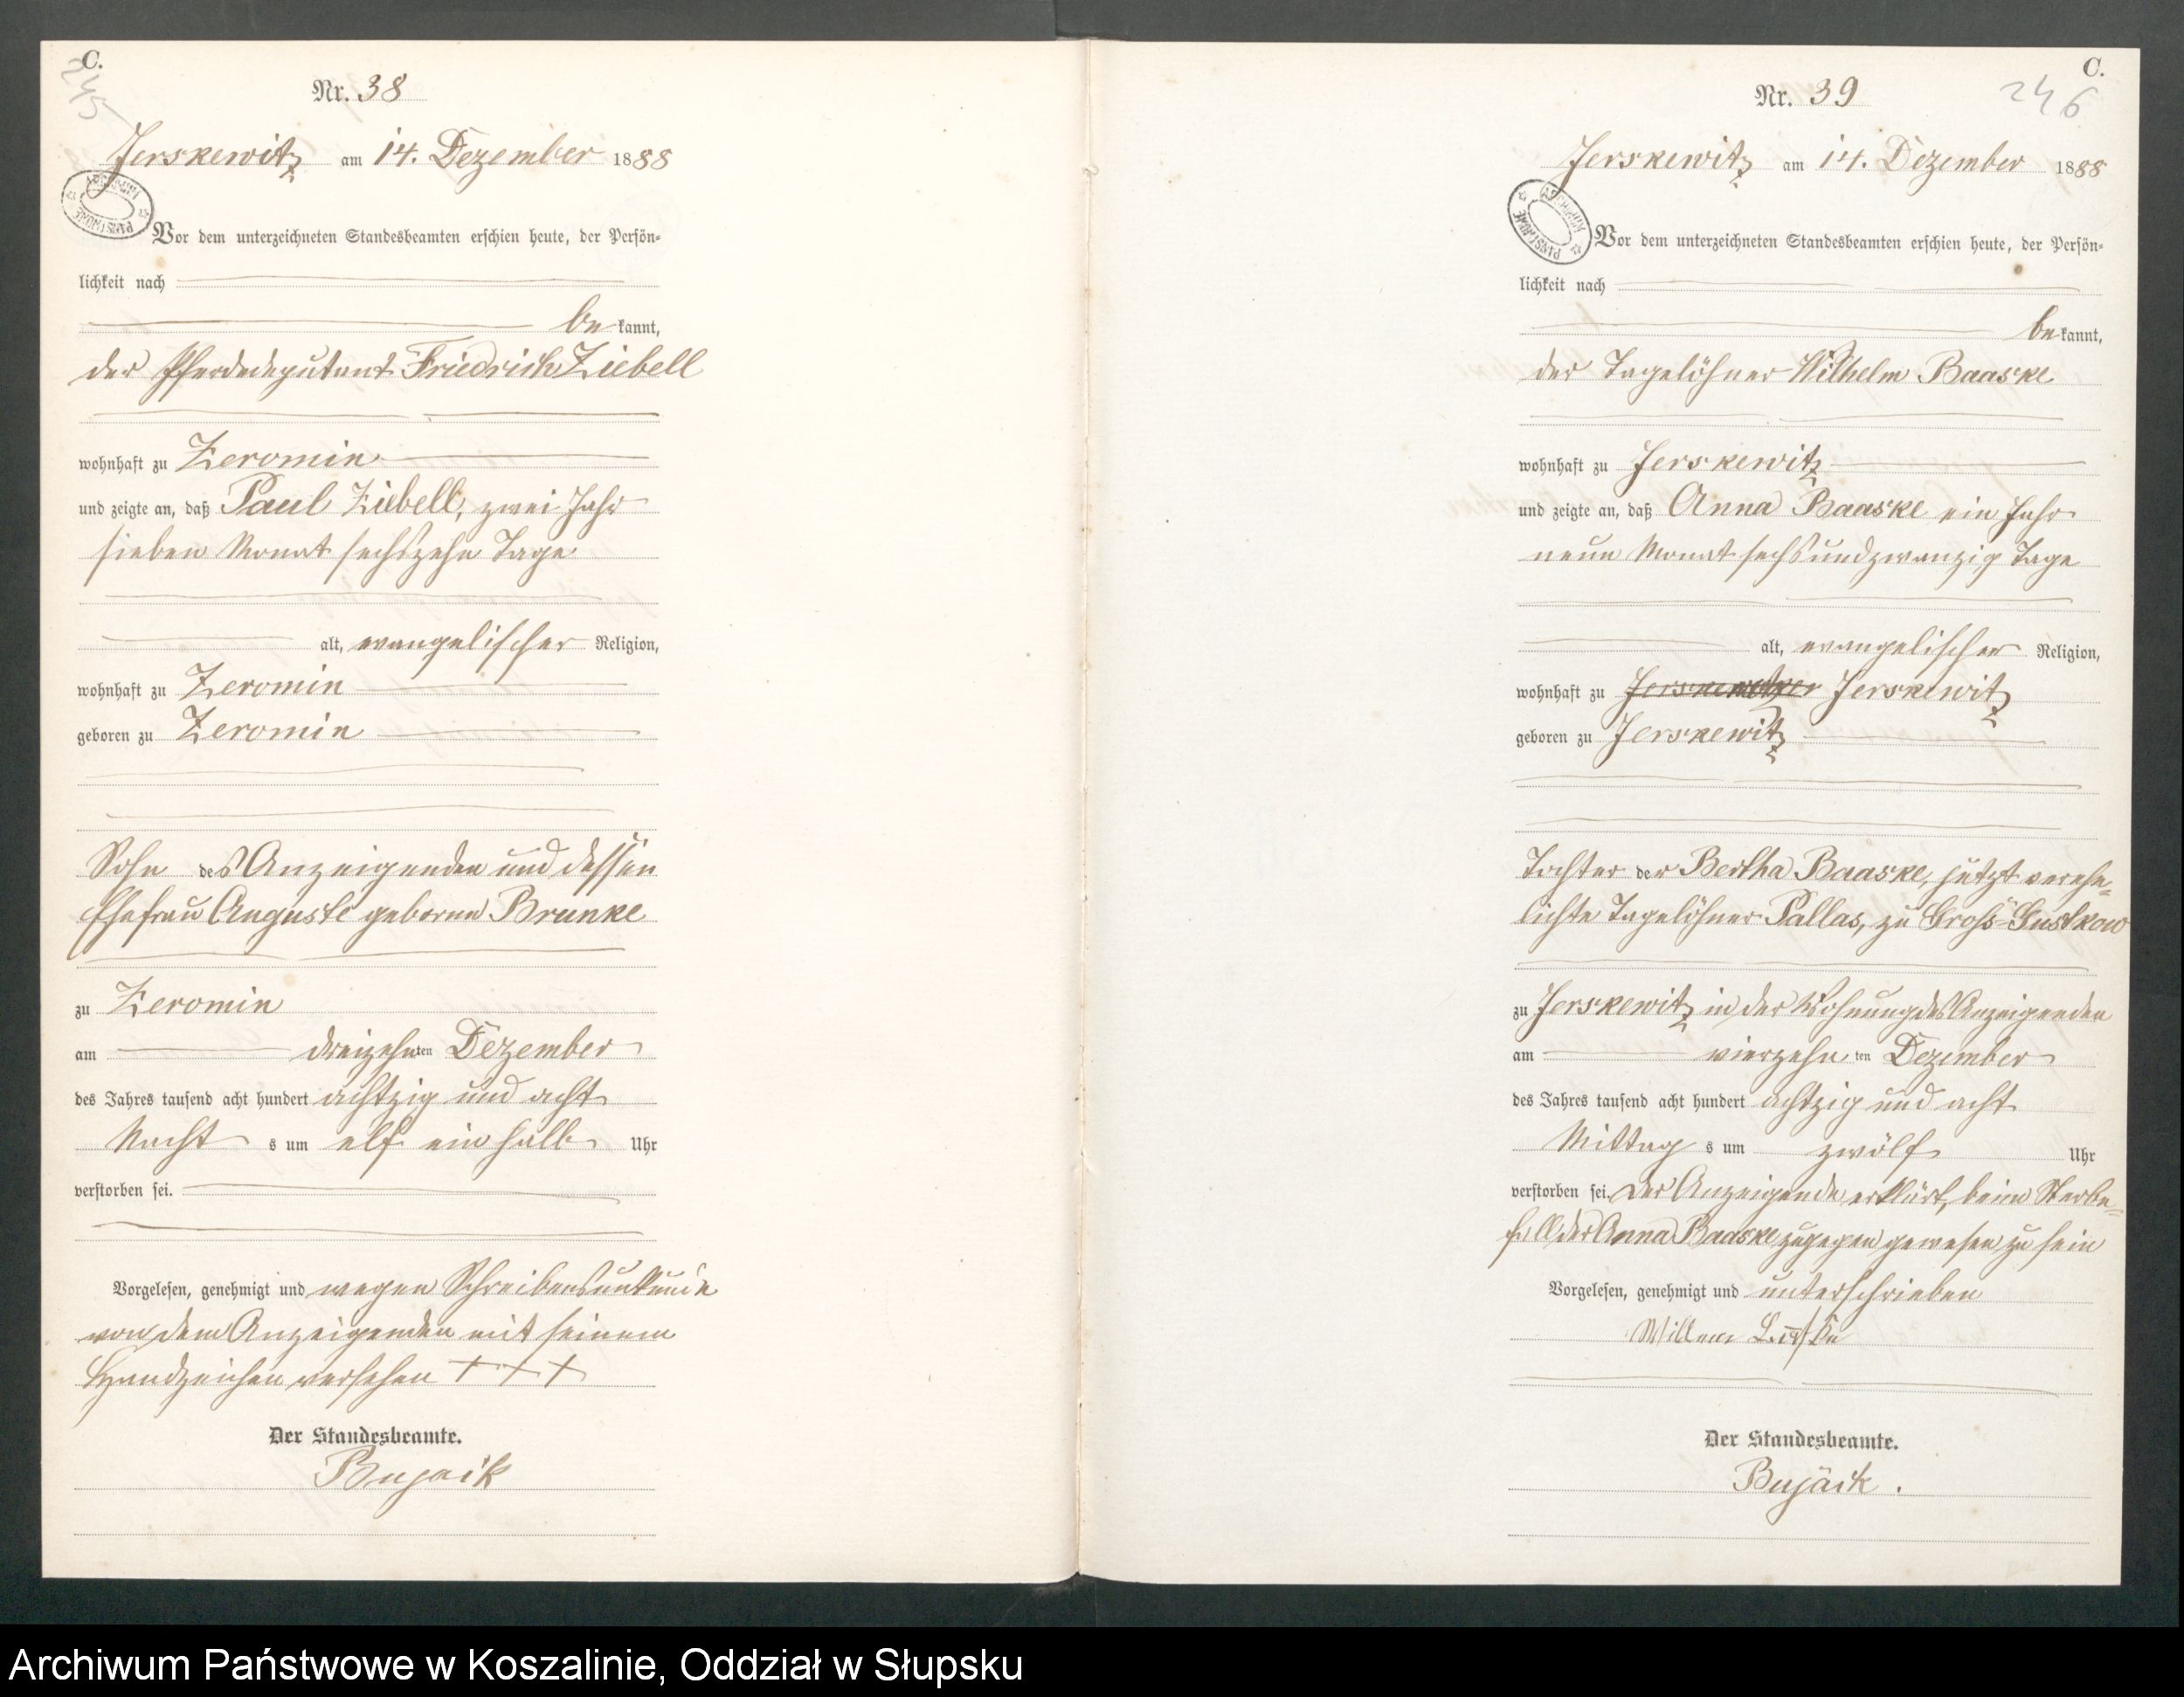 C.
245
Nr. 38
Jerskewitz am 14. Dezember 1888
Vor dem unterzeichneten Standesbeamten erschien heute, der Persön-
lichkeit nach
be kannt,
der Pferdedeputant Friedrich Ziebell
wohnhaft zu Zeromin
und zeigte an, daß Paul Ziebell, zwei Jahr
sieben Monat sechszehn Tage
alt, evangelischer Religion,
wohnhaft zu Zeromin
geboren zu Zeromin
Sohn des Anzeigenden und dessen
Ehefrau Auguste geborne Brunke
zu Zeromin
am dreizehnten Dezember
des Jahres tausend acht hundert achtzig und acht
Nacht s um elf ein halb Uhr
verstorben sei.
Vorgelesen, genehmigt und wegen Schreibensunkunde
von dem Anzeigenden mit seinem
Handzeichen versehen + + +
Der Standesbeamte.
Bujack
C.
246
Nr. 39
Jerskewitz am 14. Dezember 1888
Vor dem unterzeichneten Standesbeamten erschien heute, der Persön-
lichkeit nach
be kannt,
der Tagelöhner Wilhelm Baaske
wohnhaft zu Jerskewitz
und zeigte an, daß Anna Baaske ein Jahr
neun Monat sechsundzwanzig Tage
alt, evangelischer Religion,
wohnhaft zu Jerskewitz
geboren zu Jerskewitz
Tochter der Bertha Baaske, jetzt verehe-
lichte Tagelöhner Pallas, zu Groß-Gustkow
zu Jerskewitz in der Wohnung des Anzeigenden
am vierzehn ten Dezember
des Jahres tausend acht hundert achtzig und acht
Mittag s um zwölf Uhr
verstorben sei. Der Anzeigende erklärt, beim Sterbe-
fall der Anna Baaske zugegen gewesen zu sein
Vorgelesen, genehmigt und unterschrieben
Der Standesbeamte.
Bujäck.
Archiwum Państwowe w Koszalinie, Oddział w Słupsku